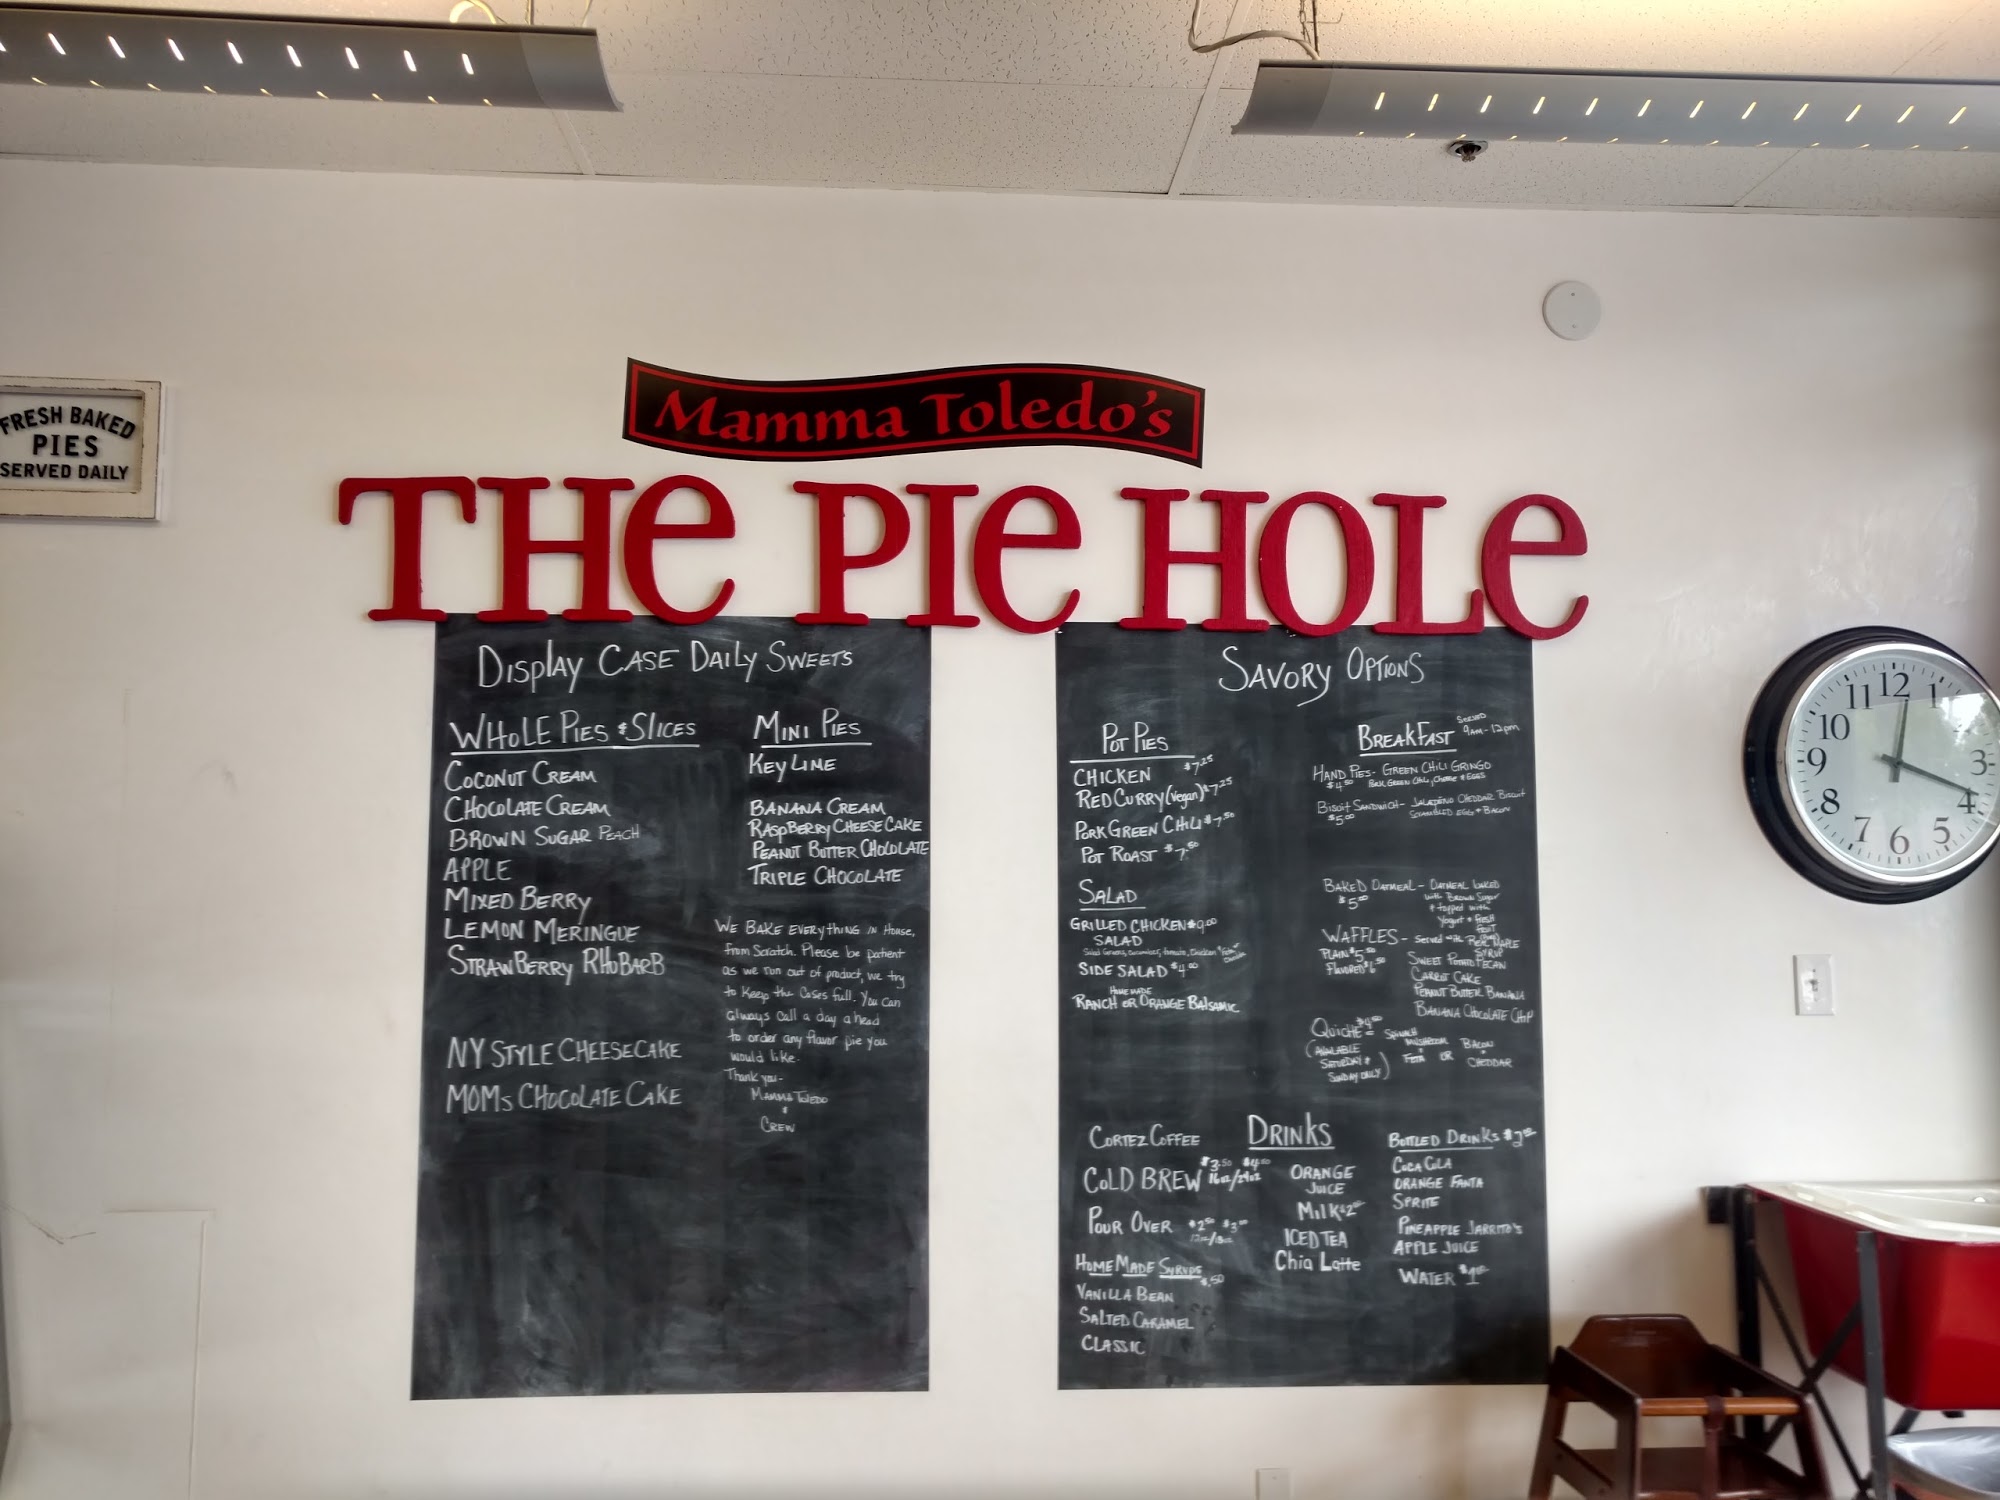 FRESH BAKED
PIES
SERVED DAILY
Mamma Toledo's
THE PIE HOLE
DISPLAY CASE DAILY SWEETS
WHOLE PIES & SLICES
COCONUT CREAM
CHOCOLATE CREAM
BROWN SUGAR PEACH
APPLE
MIXED BERRY
LEMON MERINGUE
STRAWBERRY RHUBARB
NY STYLE CHEESECAKE
MOMS CHOCOLATE CAKE
MINI PIES
KEY LIME
BANANA CREAM
RASPBERRY CHEESE CAKE
PEANUT BUTTER CHOCOLATE
TRIPLE CHOCOLATE
WE BAKE EVERYTHING IN HOUSE,
from Scratch. Please be patient
as we run out of product, we try
to keep the cases full. You can
always call a day ahead
to order any flavor pie you
would like.
Thank you-
MAMMA TOLEDO
&
CREW
SAVORY OPTIONS
POT PIES
CHICKEN $7.25
RED CURRY (Vegan) $7.25
PORK GREEN CHILI $7.50
POT ROAST $7.50
SALAD
GRILLED CHICKEN $9.00
SALAD
SIDE SALAD $4.00
HOMEMADE
RANCH OR ORANGE BALSAMIC
BREAKFAST SERVED 9AM-12pm
HAND PIES - GREEN CHILI GRINGO
$4.50 PORK, GREEN CHILI, CHEESE & EGGS
BISCUIT SANDWICH - JALAPENO CHEDDAR BISCUIT
$5.00 SCRAMBLED EGG & BACON
BAKED OATMEAL - OATMEAL BAKED
$5.00 with BROWN SUGAR
& topped with
Yogurt & FRESH
FRUIT
WAFFLES - Served with REAL MAPLE
SYRUP
PLAIN $5.50 SWEET POTATO PECAN
FLAVORED $6.50 CARROT CAKE
PEANUT BUTTER BANANA
BANANA CHOCOLATE CHIP
QUICHE SPINACH
MUSHROOM BACON
FETA OR CHEDDAR
(AVAILABLE
SATURDAY &
SUNDAY ONLY)
DRINKS
CORTEZ COFFEE
COLD BREW $3.50 $4.50
16oz/24oz
POUR OVER $2.50 $3.00
HOME MADE SYRUPS $.50
VANILLA BEAN
SALTED CARAMEL
CLASSIC
ORANGE
JUICE
MILK
ICED TEA
Chia Latte
BOTTLED DRINKS
COCA COLA
ORANGE FANTA
SPRITE
PINEAPPLE JARRITO'S
APPLE JUICE
WATER
12 1 3 4 5 6 7 8 9 10 11